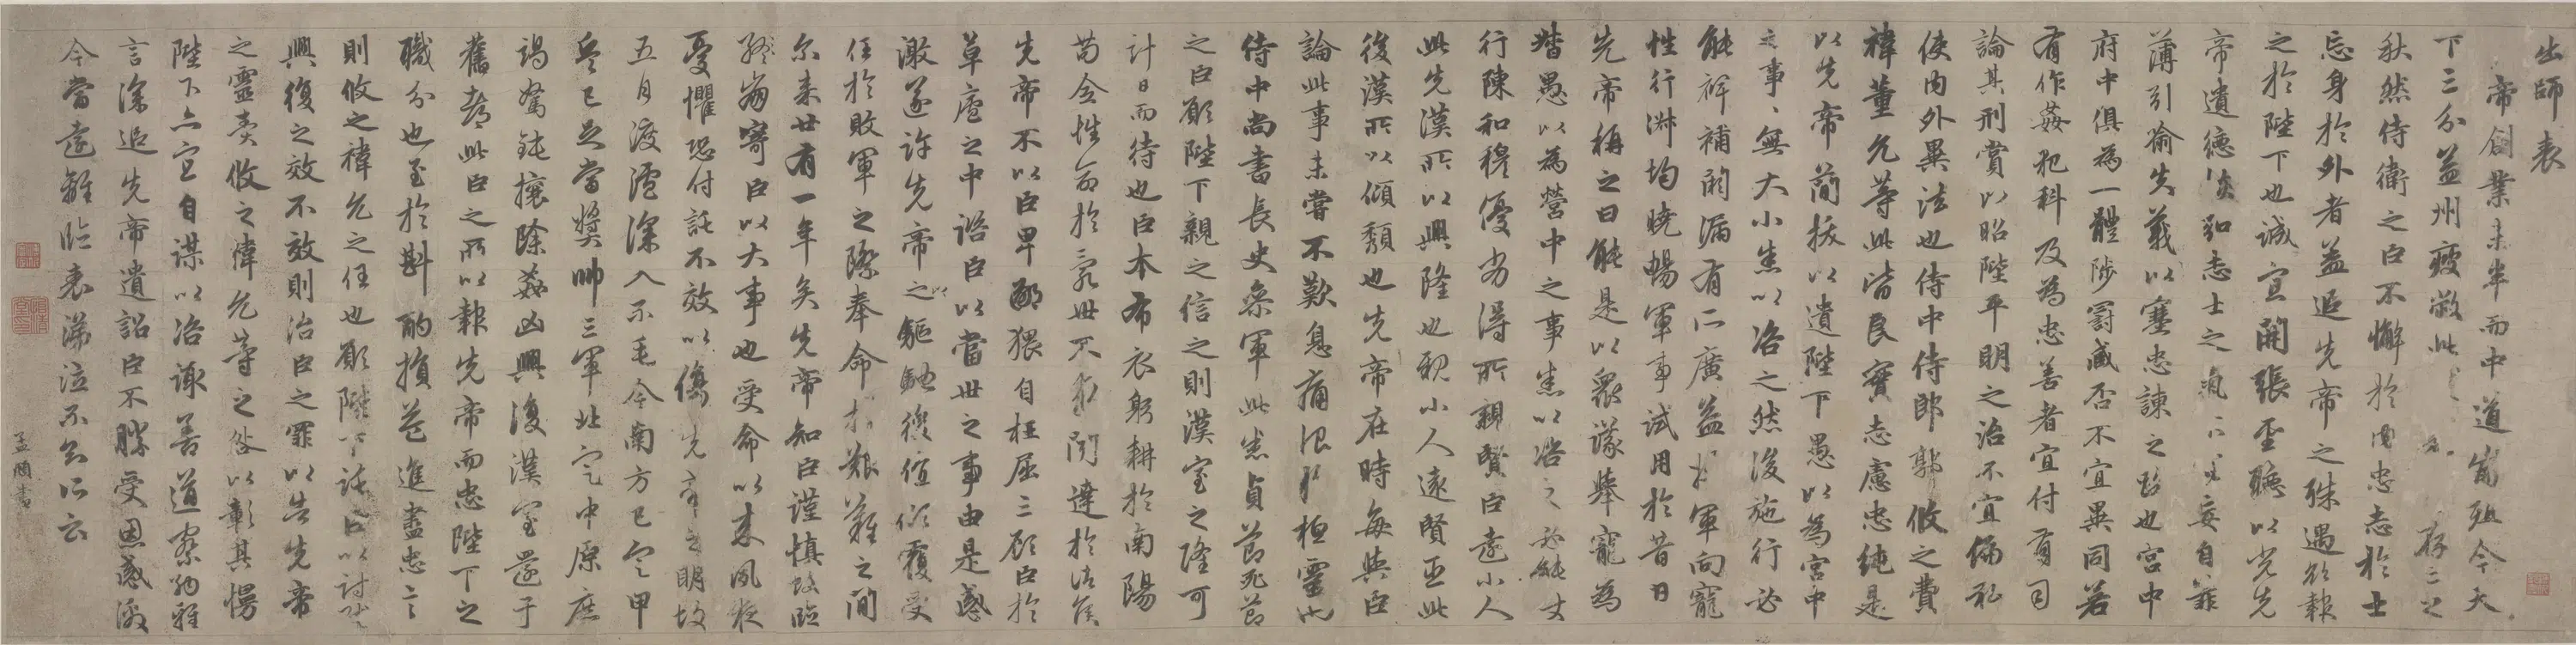 出師表
帝創業未半而中道崩殂今天
下三分益州疲弊此 存亡之
秋然侍衛之臣不懈於內忠志於士
忘身於外者益追先帝之殊遇欲報
之於陛下也誠宜開張聖聽以光先
帝遺德恢弘志士之氣不宜妄自菲
薄引喻失義以塞忠諫之路也宮中
府中俱為一體陟罰臧否不宜異同若
有作姦犯科及為忠善者宜付有司
論其刑賞以昭陛平明之治不宜偏私
使內外異法也侍中侍郎郭攸之費
禕董允等此皆良實志慮忠純是
以先帝簡拔以遺陛下愚以為宮中
之事、無大小悉以咨之然後施行必
能裨補闕漏有所廣益將軍向寵
性行淑均曉暢軍事試用於昔日
先帝稱之曰能是以眾議舉寵為
督愚以為營中之事悉以咨之必能丈
行陳和穆優劣得所親賢臣遠小人
此先漢所以興隆也親小人遠賢臣此
後漢所以傾頹也先帝在時每與臣
論此事未嘗不歎息痛恨於桓靈也
侍中尚書長史參軍此悉貞節死節
之臣願陛下親之信之則漢室之隆可
計日而待也臣本布衣躬耕於南陽
苟全性命於亂世不求聞達於諸侯
先帝不以臣卑鄙猥自枉屈三顧臣於
草廬之中諮臣以當世之事由是感
激遂許先帝以之驅馳後值傾覆受
任於敗軍之際奉命於艱難之間
尔来廿有一年矣先帝知臣謹慎故臨
終崩寄臣以大事也受命以来夙夜
憂懼恐付託不效以傷先帝之明故
五月渡瀘深入不毛今南方已定甲
兵已足當獎帥三軍北定中原庶
竭駑鈍攘除姦凶興復漢室還于
舊都此臣之所以報先帝而忠陛下之
職分也至於斟酌損益進盡忠言
則攸之禕允之任也願陛下託臣以討賊
興復之效不效則治臣之罪以告先帝
之靈責攸之禕允等之咎以彰其慢
陛下亦宜自謀以咨諏善道察納雅
言深追先帝遺詔臣不勝受恩感激
今當遠離臨表涕泣不知所云
孟頫書